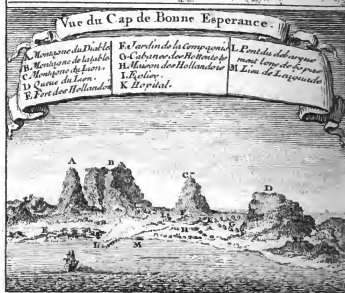 Vue du Cap de Bonne Esperance.
A. Montagne du Diable
B. Montagne de la table
C. Montagne du Lion.
D Queue du Lion.
E. Fort des Hollandois
F. Jardin de la Compagnie
G. Cabanes des Hottentots
H. Maison des Hollandois
I. Eglise.
K Hopital.
L. Pont du debarque
ment long de
M. Lieu de
A
B
C
D
E
H
L
M